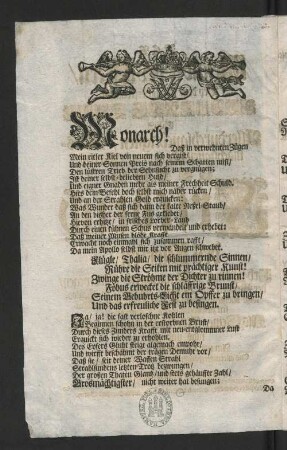 Monarch!
Daß in verwehnten Zügen
Mein eitler Kiel von neuem sich vergist/
Und deiner Sonnen Preis nach seinem Schatten mist/
Den lüstren Trieb der Sehnsucht zu vergnügen;
Ist deiner selbst-
Und eigner Gnaden mehr als meiner Frechheit Schuld.
Hies dein Befehl doch selbst mich näher rücken/
Und an der Strahlen Gold
Was Wunder daß sich dann der kalte Nebel-Staub/
An den bisher der ferne
Hievon erhitzt/ in frisches Lorber-Laub
Durch einen kühnen Schus verwandelt und erheben:
Daß meiner Musen
Erweicht noch einmahl sich zusammen rafft/
Da mein Apollo selbst mir mit den Augen
Klügle/ Thalia/ die schlummernde Sinnen/
Rühre die Seiten mit prächtiger Kunst!
Zwinge die Ströhme der Dichter zu rinnen!
Föbus erwecket die schläffrige Brunst/
Seinem Gebuhrts-Licht ein Opffer zu bringen/
Und das erfreuliche Fest zu besingen.
Ja/ ja! die fast verloschne Kohlen
Beginnen schon in der erstorbnen Brust/
Durch dieses Zunders Krafft mit neu-entglommner Lust
Erquickt sich wieder zu erhohlen.
Des Eifers Glutt steigt algemach empohr/
Und wirfft der trägen Demuht vor/
Daß sie/ seit deiner Waffen Strahl
letzten Trotz bezwungen/
Der großen Thaten Glantz/ und stets gehäuffte Zahl/
Grosmächtigster/ nicht weiter hat besungen:
Da